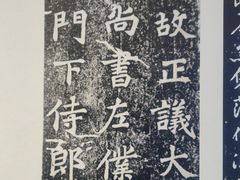 故正議大
尚書左僕
門下侍郎